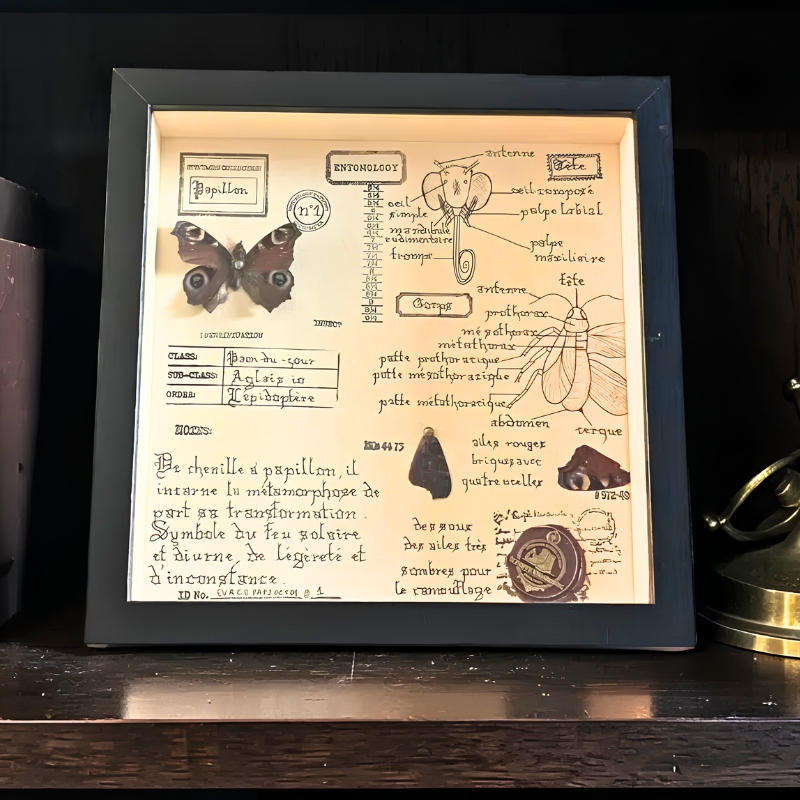 Papillon
n°1
ENTOMOLOGY
Tête
antenne
oeil composé
palpe labial
oeil
simple
mandibule
rudimentaire
trompe
palpe
maxiliaire
Corps
antenne
tête
prothorax
mésothorax
métathorax
patte prothoratique
patte mésothorazique
patte métothoracique
abdomen
cerque
INSECT
CLASS: Paon-du-jour
SUB-CLASS: Aglais io
ORDER: Lépidoptère
NOTES:
De chenille à papillon, il
incarne la métamorphose de
part sa transformation.
Symbole du feu solaire
et diurne, de légèreté et
d'inconstance.
ID No.
4475
ailes rouges
briques avec
quatre ocelles
dessous
des ailes très
sombres pour
le camouflage